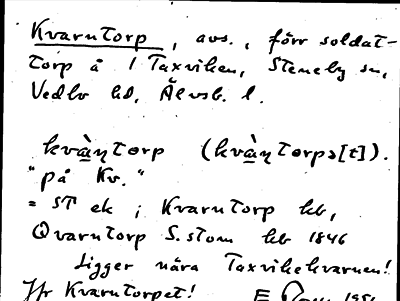 Kvarntorp, avs., förr soldat-
torp å 1 Taxviken, Steneby sn,
Vedbo hd, Älvsb. l.
kvàn̥torp (kvàn̥torpə[t]).
"på Kv."
= ST ek i Kvarntorp hb,
Qvarntorp S.stom hb 1846
Ligger nära Taxvikekvarnen!
Jfr Kvarntorpet!